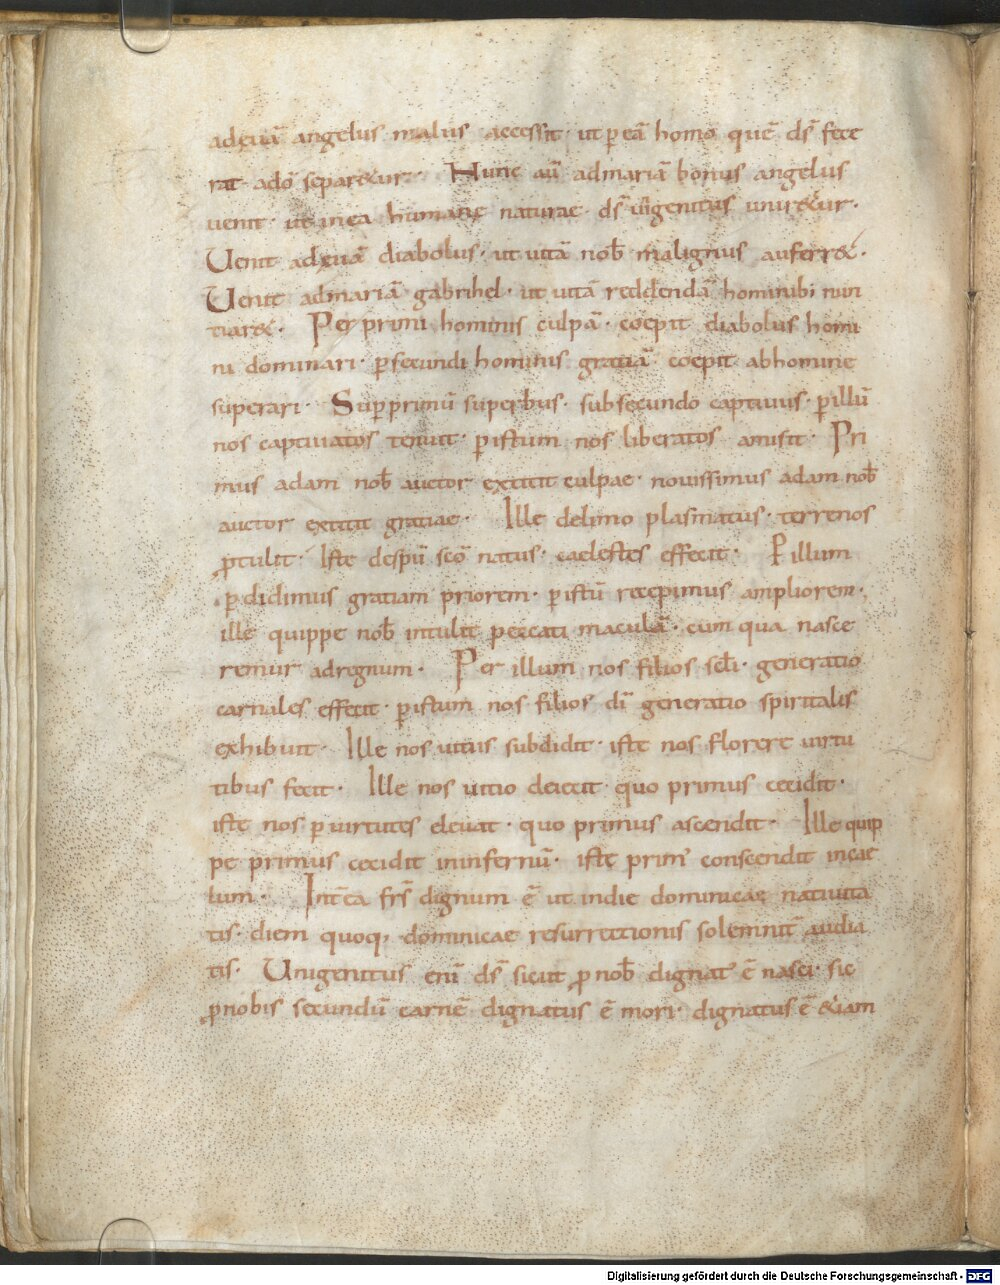 adeuā angelus malus accessit· ut p̄ eā homo quē dſ̄ fece
rat· adō separ&ur· Nunc aū admariā bonus angelus
uenit· ut inea humanę naturae· dſ̄ uīgenitus unir&ur·
Uenit adeuā diabolus· ut uitā nob̄ malignus auferr&·
Uenit admariā gabrihel· ut uitā reddendā hominibī nun
tiar&· Per primi hominis culpā· coepit diabolus homi
ni dominari· p̄secundi hominis gratiā coepit abhomine
superari· Supprimū superbus· subsecundo captiuus· p̄illū
nos captiuatos tenuit· p̄istum nos liberatos amisit· Pri
mus adam nob̄ auctor extitit culpae· nouissimus adam nob̄
auctor extitit gratiae· Ille delimo plasmatus· terrenos
ꝓtulit· Iste despū sc̄o natus· caelestes effecit· P̄illum
p̄didimus gratiam priorem· p̄istū recepimus ampliorem·
ille quippe nob̄ intulit peccati maculā· cum qua nasce
remur adregnum· Per illum nos filios scl̄i· generatio
carnales effecit· p̄istum nos filios dī generatio spiritalis
exhibuit· Ille nos uitiis subdidit· iste nos florere uirtu
tibus fecit· Ille nos uitio deiecit· quo primus cecidit·
iste nos p̄uirtutes eleuat· quo primus ascendit· Ille quip
pe primus cecidit ininfernū· iste prim' conscendit incae
lum· Int̄ea fr̄s dignum ē ut indie dominicae natiuita
tis· diem quoq; dominicae resurrectionis solemnit̄ audia
tis· Unigenitus enī dſ̄ sicut ꝓnob̄ dignat' ē nasci· sic
ꝓnobis secundū carnē dignatus ē mori· dignatus ē &iam
Digitalisierung gefördert durch die Deutsche Forschungsgemeinschaft - DFG